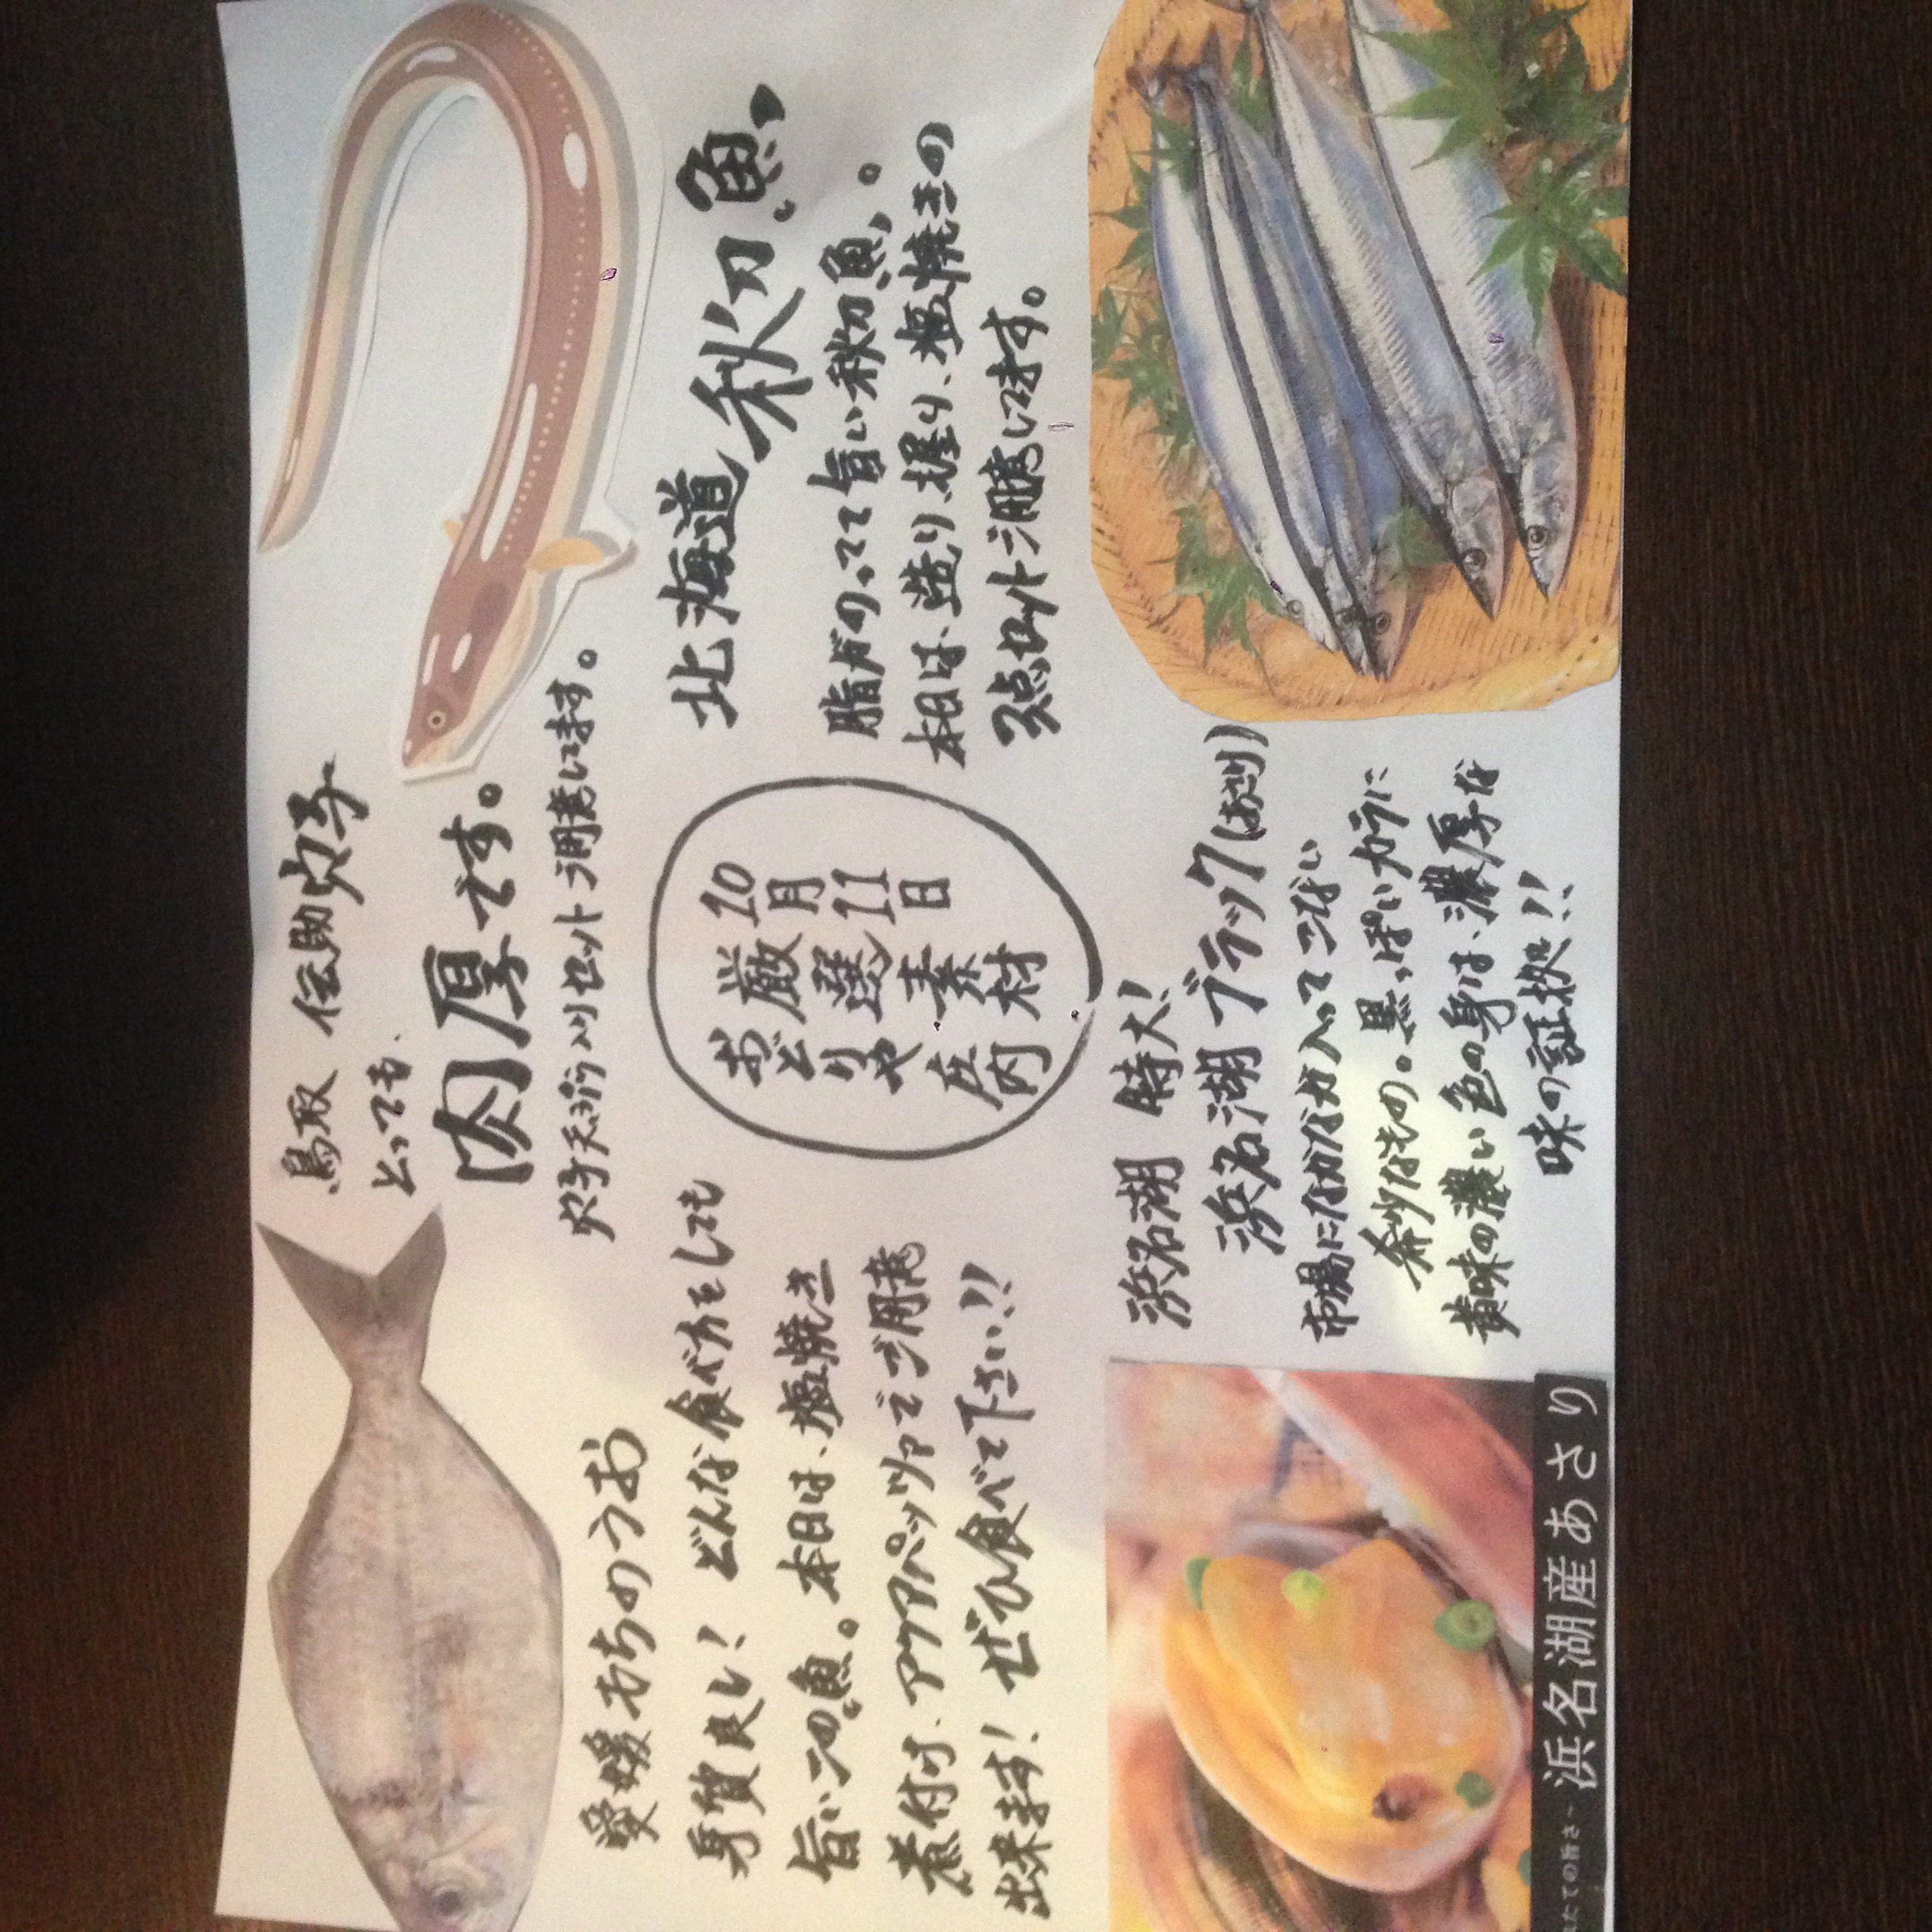 愛媛 おちめうお
身質良し! どんな食べ方をしても
旨いこの魚。本日は、塩焼き
煮付け、アクアパッツァでご用意
出来ます! ぜひ食べて下さい!!
鳥取 伝助穴子
とっても、
肉厚です。
穴子天ぷら 入り セットご用意してます。
10月11日
厳選素材
おどりや庄内
北海道 秋刀魚
脂がのってて旨い秋刀魚。
本日は、造り、握り、塩焼きの
3点セットご用意してます。
浜名湖 特大!
浜名湖ブラック(あさり)
市場になかなか入ってこない
希少なもの。黒っぽいカラに
黄味の濃い色の身は、濃厚な
味の証拠!!
たての旨さ~ 浜名湖産あさり